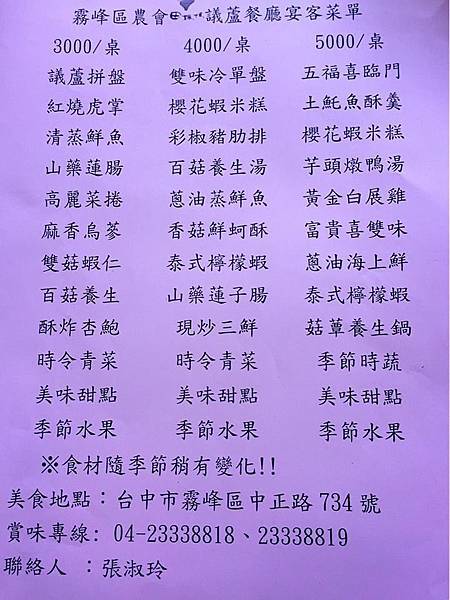 霧峰區農會 議蘆餐廳宴客菜單
3000/桌 4000/桌 5000/桌
議蘆拼盤 雙味冷單盤 五福喜臨門
紅燒虎掌 櫻花蝦米糕 土魠魚酥羹
清蒸鮮魚 彩椒豬肋排 櫻花蝦米糕
山藥蓮腸 百菇養生湯 芋頭燉鴨湯
高麗菜捲 蔥油蒸鮮魚 黃金白展雞
麻香烏蔘 香菇鮮蚵酥 富貴喜雙味
雙菇蝦仁 泰式檸檬蝦 蔥油海上鮮
百菇養生 山藥蓮子腸 泰式檸檬蝦
酥炸杏鮑 現炒三鮮 菇蕈養生鍋
時令青菜 時令青菜 季節時蔬
美味甜點 美味甜點 美味甜點
季節水果 季節水果 季節水果
※食材隨季節稍有變化!!
美食地點：台中市霧峰區中正路 734 號
賞味專線: 04-23338818、23338819
聯絡人 ：張淑玲